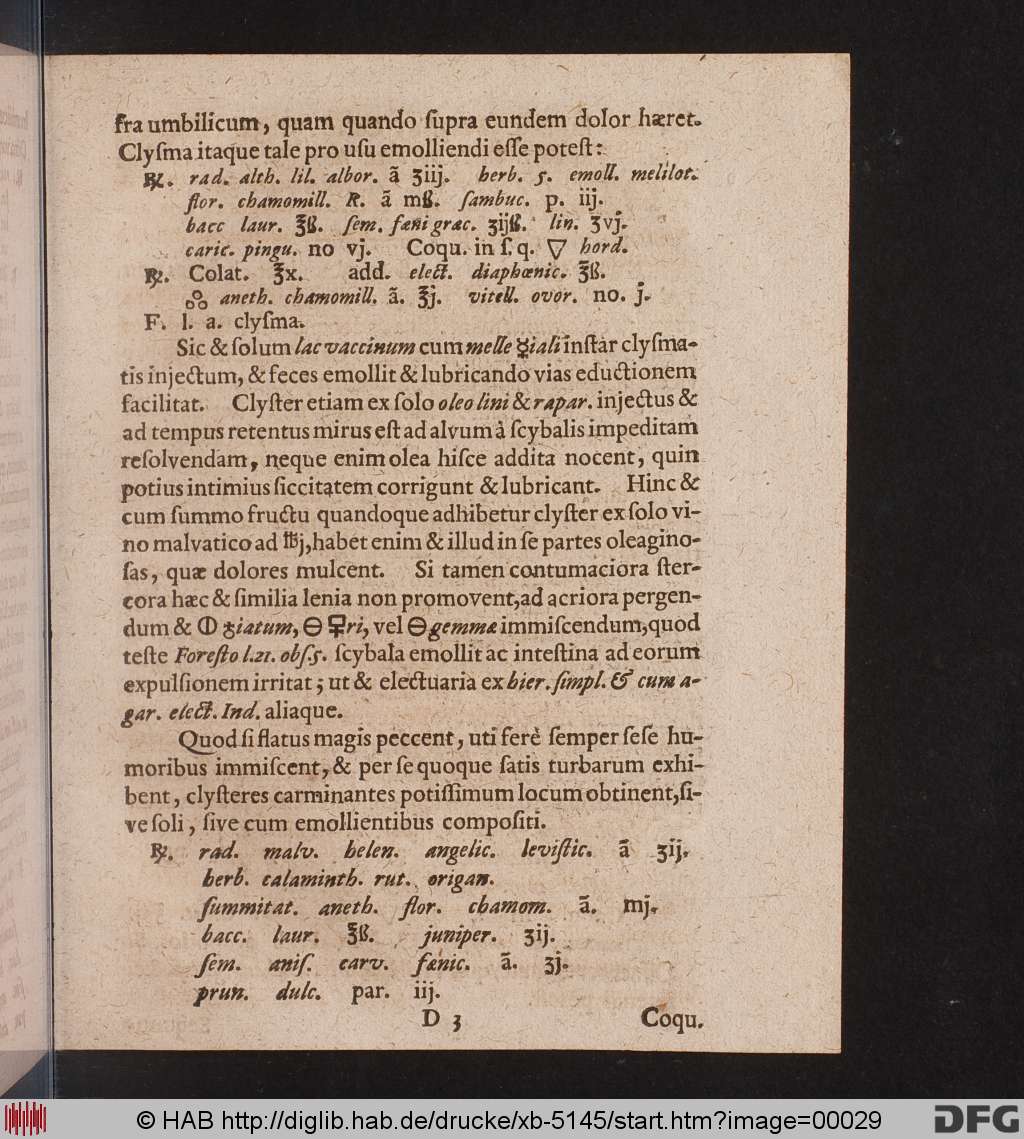 fra umbilicum, quam quando ſupra eundem dolor hæret.
Clyſma itaque tale pro uſu emolliendi eſſe poteſt:
℞. rad. alth. lil. albor. ā ʒiij. herb. 5. emoll. melilot.
flor. chamomill. R. ā mß. ſambuc. p. iij.
bacc laur. ℥ß. ſem. fœni græc. ʒijß. lin. ʒvj.
caric. pingu. no vj. Coqu. in ſ. q. ▽ hord.
℞. Colat. ℥x. add. elect. diaphœnic. ℥ß.
ஃ aneth. chamomill. ā. ℥j. vitell. ovor. no. j.
F. l. a. clyſma.
Sic & ſolum lac vaccinum cum melle ☿iali inſtar clyſma-
tis injectum, & feces emollit & lubricando vias eductionem
facilitat. Clyſter etiam ex ſolo oleo lini & rapar. injectus &
ad tempus retentus mirus eſt ad alvum à ſcybalis impeditam
reſolvendam, neque enim olea hiſce addita nocent, quin
potius intimius ſiccitatem corrigunt & lubricant. Hinc &
cum ſummo fructu quandoque adhibetur clyſter ex ſolo vi-
no malvatico ad ℔j, habet enim & illud in ſe partes oleagino-
ſas, quæ dolores mulcent. Si tamen contumaciora ſter-
cora hæc & ſimilia lenia non promovent, ad acriora pergen-
dum & ⦶ ♁iatum, ⊖ 🜍ri, vel ⊖ gemmæ immiſcendum, quod
teſte Foreſto l. 21. obſ. 5. ſcybala emollit ac inteſtina ad eorum
expulſionem irritat; ut & electuaria ex hier. ſimpl. & cum a-
gar. elect. Ind. aliaque.
Quod ſi flatus magis peccent, uti ferè ſemper ſeſe hu-
moribus immiſcent, & per ſe quoque ſatis turbarum exhi-
bent, clyſteres carminantes potiſſimum locum obtinent, ſi-
ve ſoli, ſive cum emollientibus compoſiti.
℞. rad. malv. helen. angelic. leviſtic. ā ʒij.
herb. calaminth. rut. origan.
ſummitat. aneth. flor. chamom. ā. mj.
bacc. laur. ℥ß. juniper. ʒij.
ſem. aniſ. carv. fœnic. ā. ʒj.
prun. dulc. par. iij.
D 3 Coqu.
© HAB http://diglib.hab.de/drucke/xb-5145/start.htm?image=00029 DFG